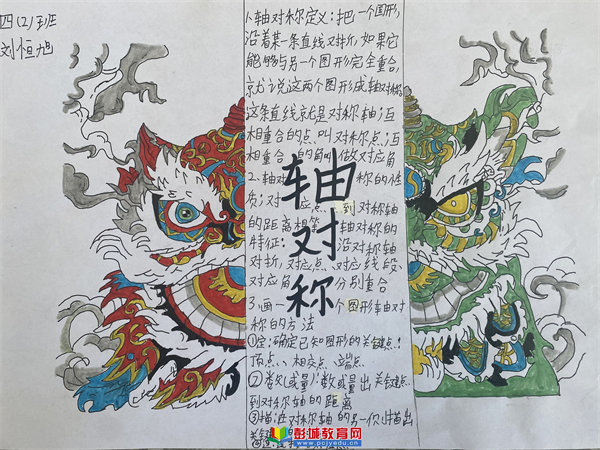 四(2)班
刘恒旭
1.轴对称定义:把一个图形,
沿着某一条直线对折,如果它
能够与另一个图形完全重合,
就说这两个图形成轴对称,
这条直线就是对称轴,互
相重合的点,叫对称点,互
相重合的角叫做对应角
2.轴对称的性
质:对应点到对称轴
的距离相等轴对称的
特征:沿对称轴
对折,对应点、对应线段、
对应角分别重合
3.画一个图形轴对
称的方法
①定:确定已知图形的关键点!
顶点、相交点、端点
②数(或量):数或量出关键点
到对称轴的距离
③描:在对称轴的另一侧描出
关键
轴对称
彭城教育网
www.pcjyedu.cn